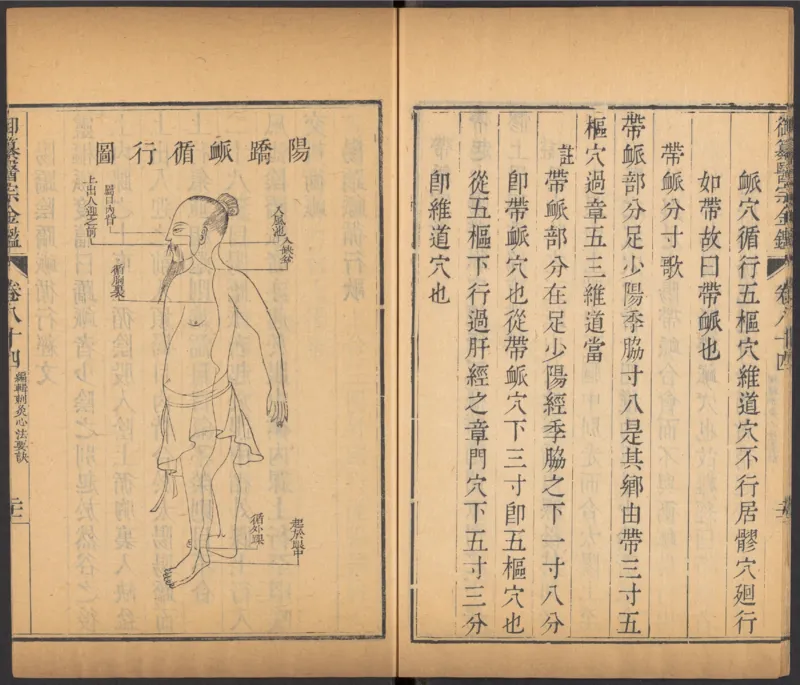 御纂醫宗金鑑
卷八十四
脈穴循行五樞穴維道穴不行居髎穴廻行
如帶故曰帶脈也
帶脈分寸歌
帶脈部分足少陽季脇寸八是其鄉由帶三寸五
樞穴過章五三維道當
註
帶脈部分在足少陽經季脇之下一寸八分
卽帶脈穴也從帶脈穴下三寸卽五樞穴也
從五樞下行過肝經之章門穴下五寸三分
卽維道穴也
陽蹻脈循行圖
入風池
入缺盆
屬目內眥
上出人迎之前
循胸裏
循外踝
起於跟中
御纂醫宗金鑑
卷八十四
編輯刺灸心法要訣